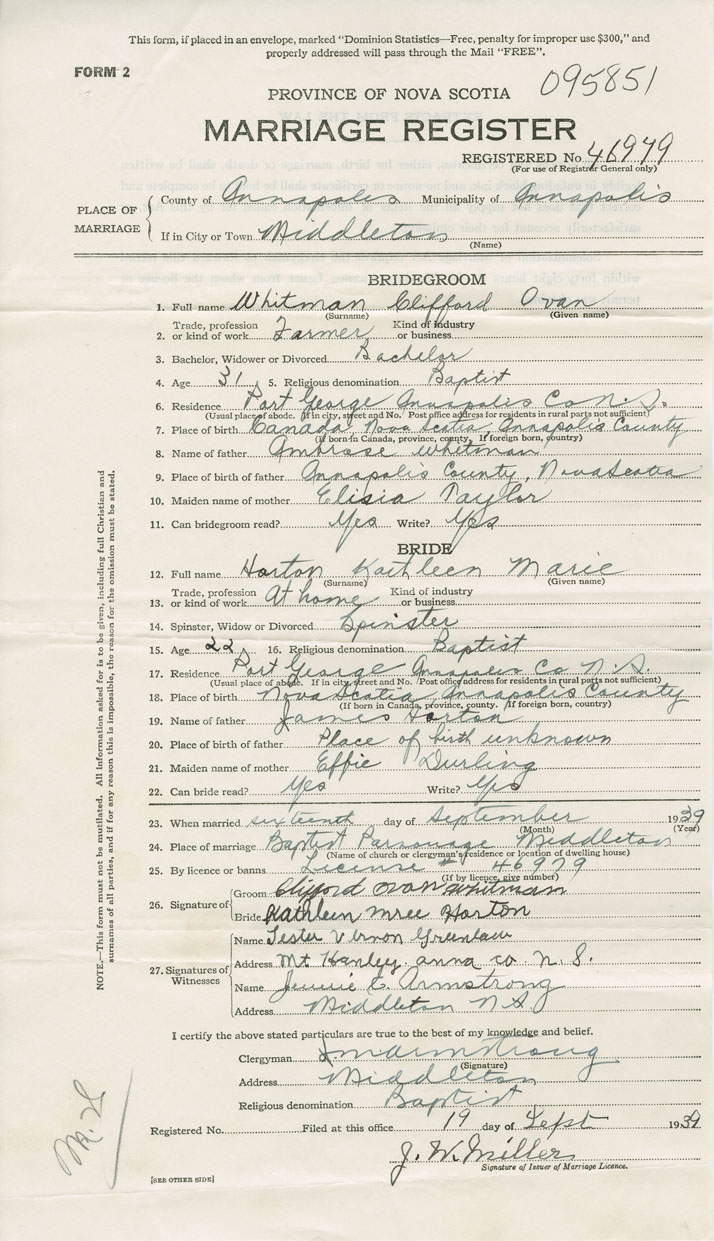 This form, if placed in an envelope, marked "Dominion Statistics—Free, penalty for improper use $300," and
properly addressed will pass through the Mail "FREE".
FORM 2
095851
PROVINCE OF NOVA SCOTIA
MARRIAGE REGISTER
REGISTERED No. 46979
(For use of Registrar General only)
PLACE OF MARRIAGE
County of Annapolis Municipality of Annapolis
If in City or Town Middleton
(Name)
BRIDEGROOM
1. Full name Whitman Clifford Ovan
(Surname) (Given name)
2. Trade, profession or kind of work Farmer Kind of industry or business
3. Bachelor, Widower or Divorced Bachelor
4. Age 31 5. Religious denomination Baptist
6. Residence Port George Annapolis Co N.S.
(Usual place of abode. If in city, street and No. Post office address for residents in rural parts not sufficient)
7. Place of birth Canada, Nova Scotia, Annapolis County
(If born in Canada, province, county. If foreign born, country)
8. Name of father Ambrose Whitman
9. Place of birth of father Annapolis County, Nova Scotia
10. Maiden name of mother Elisia Naylor
11. Can bridegroom read? Yes Write? Yes
BRIDE
12. Full name Horton Kathleen Marie
(Surname) (Given name)
13. Trade, profession or kind of work At home Kind of industry or business
14. Spinster, Widow or Divorced Spinster
15. Age 22 16. Religious denomination Baptist
17. Residence Port George Annapolis Co N.S.
(Usual place of abode. If in city, street and No. Post office address for residents in rural parts not sufficient)
18. Place of birth Nova Scotia, Annapolis County
(If born in Canada, province, county. If foreign born, country)
19. Name of father James Horton
20. Place of birth of father Place of birth unknown
21. Maiden name of mother Effie Durling
22. Can bride read? Yes Write? Yes
23. When married sixteenth day of September 1939
(Month) (Year)
24. Place of marriage Baptist Parsonage Middleton
(Name of church or clergyman's residence or location of dwelling house)
25. By licence or banns License # 46979
(If by licence, give number)
26. Signature of
Groom Clifford Ovan Whitman
Bride Kathleen Mree Horton
27. Signatures of Witnesses
Name Lester Vernon Greenlaw
Address Mt Hanley anna co N.S.
Name Jennie E. Armstrong
Address Middleton N.S.
I certify the above stated particulars are true to the best of my knowledge and belief.
Clergyman Armstrong
(Signature)
Address Middleton
Religious denomination Baptist
Registered No. Filed at this office 19 day of Sept 1939
J. W. Miller
Signature of Issuer of Marriage Licence.
[SEE OTHER SIDE]
NOTE.—This form must not be mutilated. All information asked for is to be given, including full Christian and
surnames of all parties, and if for any reason this is impossible, the reason for the omission must be stated.